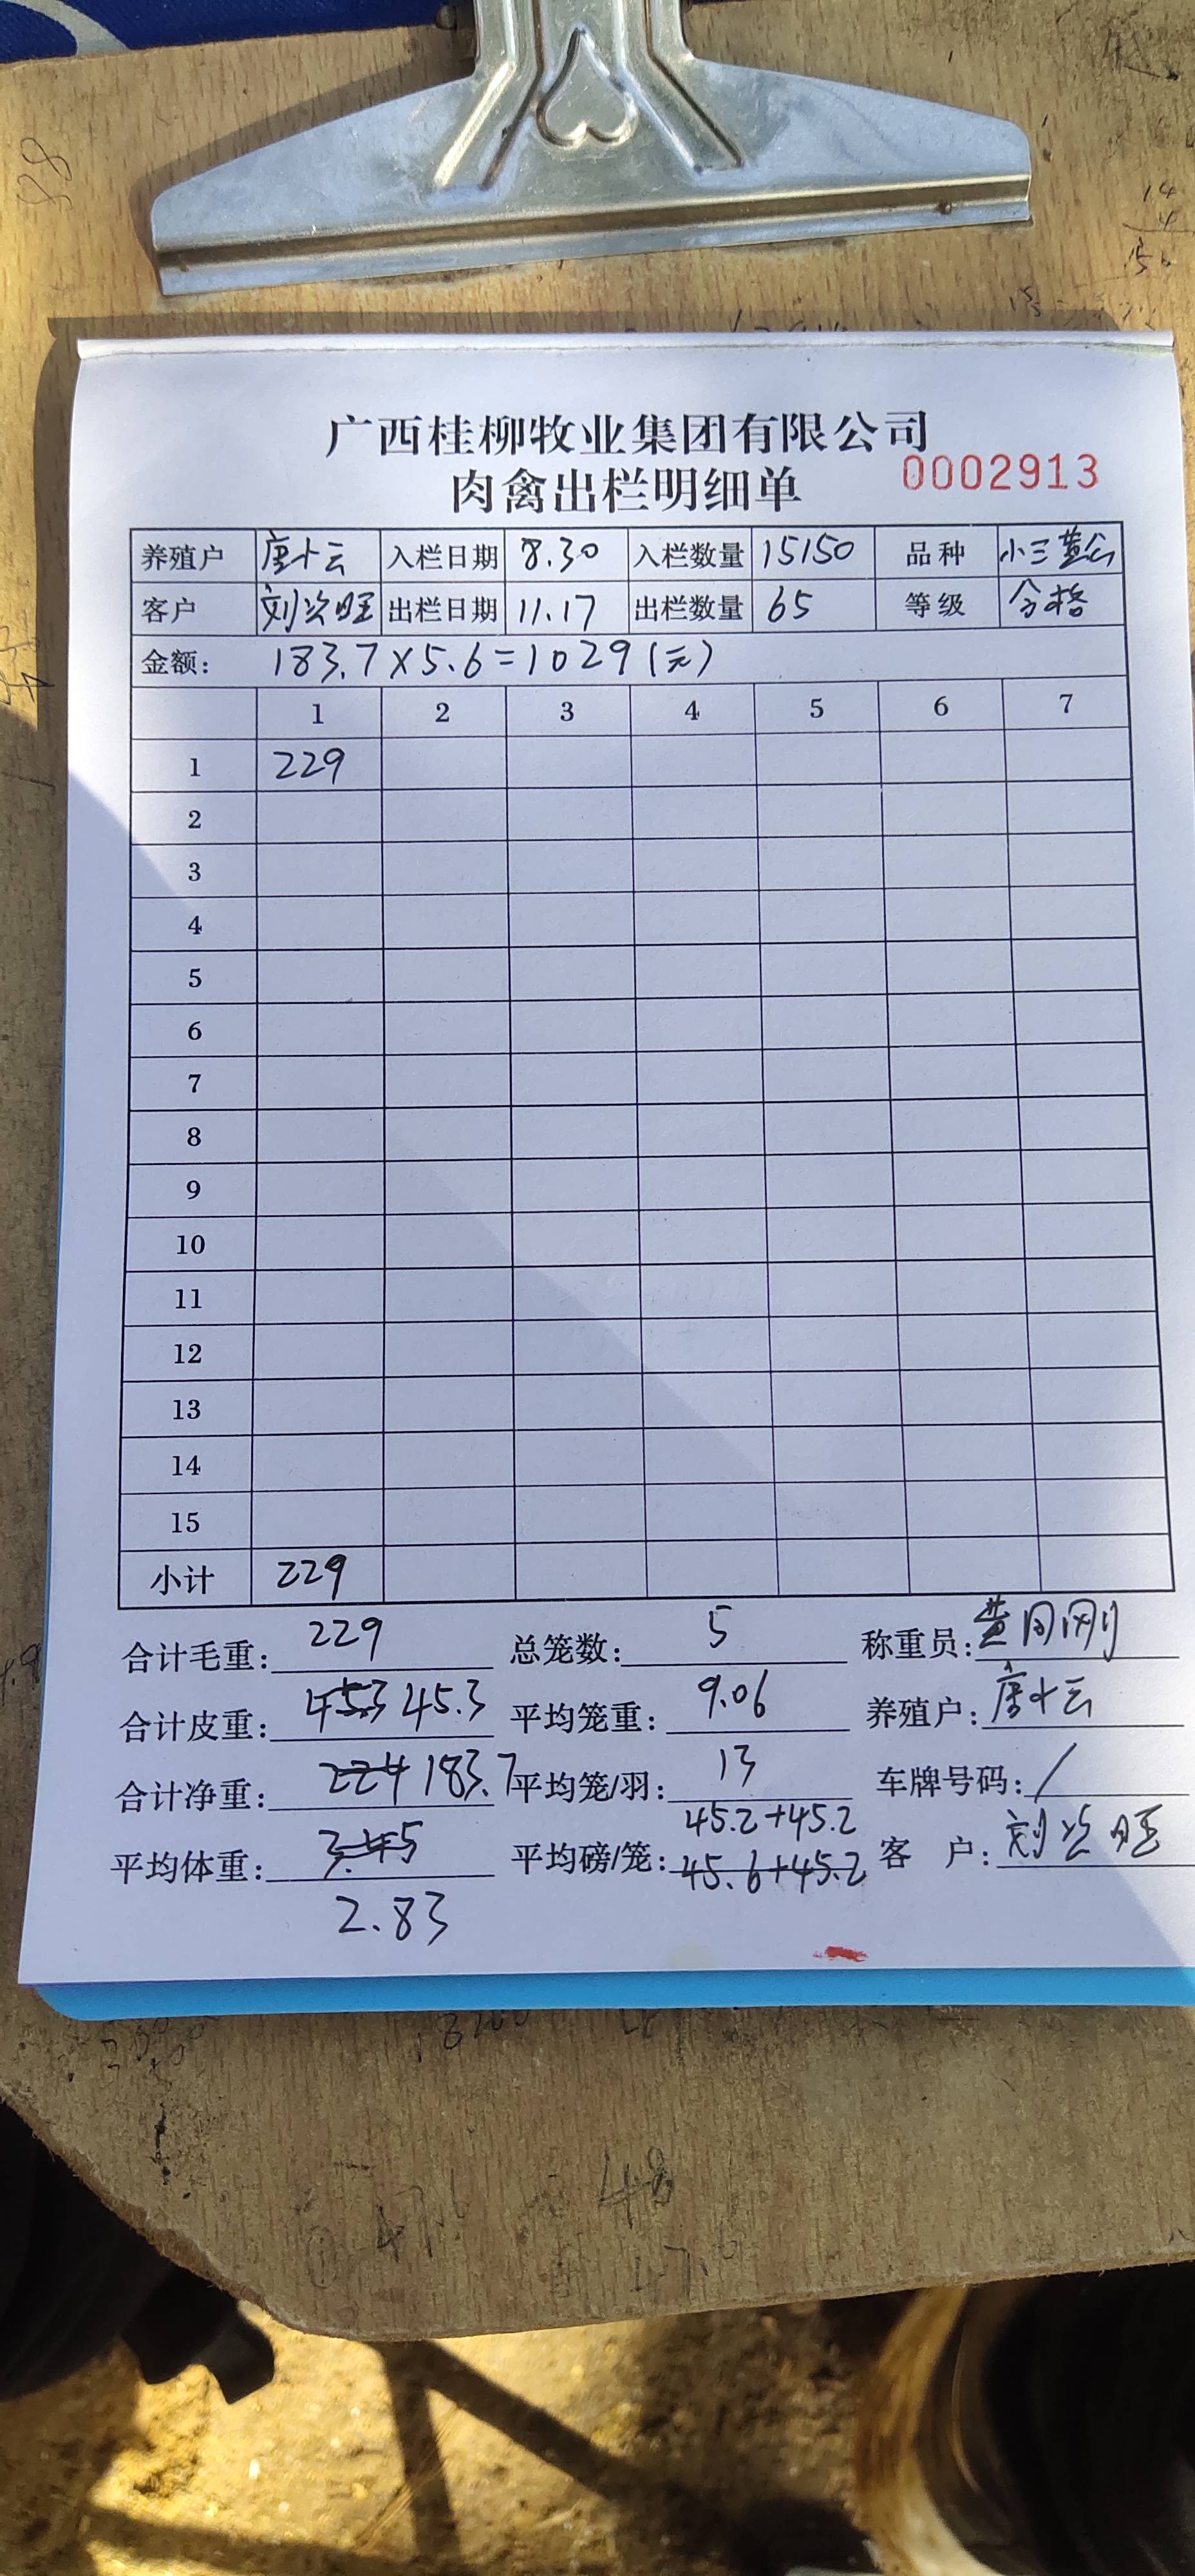 广西桂柳牧业集团有限公司
肉禽出栏明细单 0002913
养殖户 唐十云 入栏日期 8.30 入栏数量 15150 品种 小三黄公
客户 刘次旺 出栏日期 11.17 出栏数量 65 等级 合格
金额: 183.7×5.6=1029(元)
1 2 3 4 5 6 7
1 229
2
3
4
5
6
7
8
9
10
11
12
13
14
15
小计 229
合计毛重: 229 总笼数: 5 称重员: 黄同刚
合计皮重: 45.3 45.3 平均笼重: 9.06 养殖户: 唐十云
合计净重: 224 183.7 平均笼/羽: 13 车牌号码: /
45.2+45.2
平均体重: 3.45 平均磅/笼: 45.6+45.2 客 户: 刘次旺
2.83
14
4
48